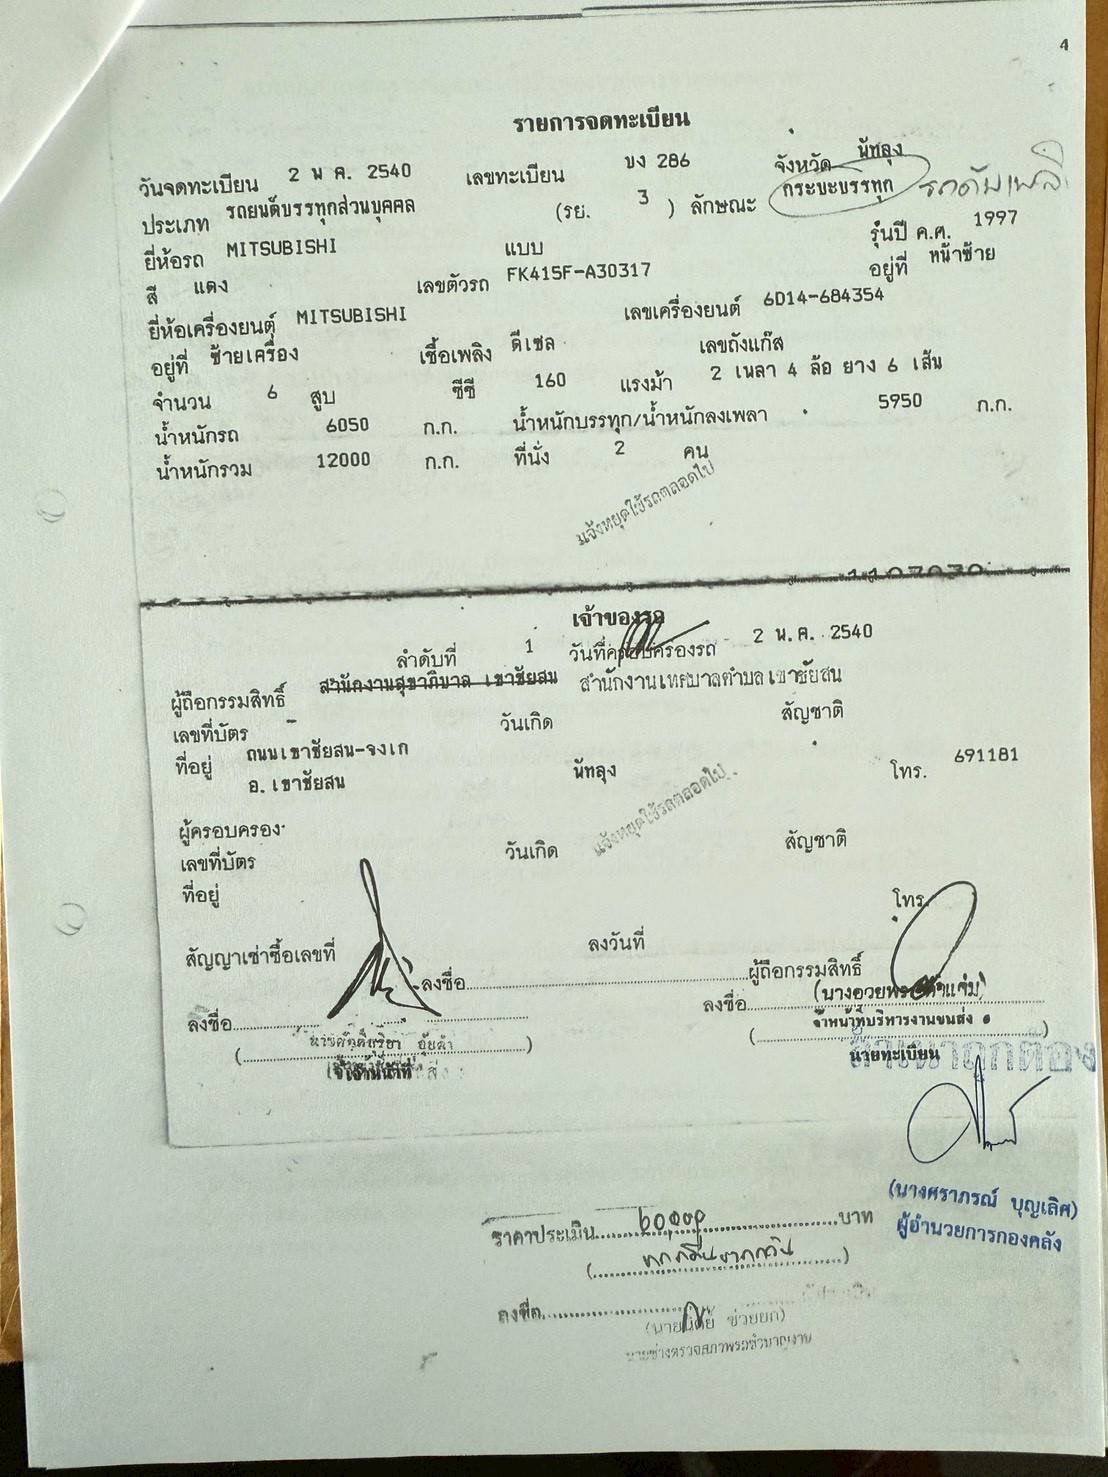 4
รายการจดทะเบียน
วันจดทะเบียน 2 พ ค. 2540 เลขทะเบียน บง 286 จังหวัด พัทลุง
ประเภท รถยนต์บรรทุกส่วนบุคคล (รย. 3 ) ลักษณะ กระบะบรรทุก รถดับเพลิง
ยี่ห้อรถ MITSUBISHI แบบ รุ่นปี ค.ศ. 1997
สี แดง เลขตัวรถ FK415F-A30317 อยู่ที่ หน้าซ้าย
ยี่ห้อเครื่องยนต์ MITSUBISHI เลขเครื่องยนต์ 6D14-684354
อยู่ที่ ซ้ายเครื่อง เชื้อเพลิง ดีเซล เลขถังแก๊ส
จำนวน 6 สูบ ซีซี 160 แรงม้า 2 เพลา 4 ล้อ ยาง 6 เส้น
น้ำหนักรถ 6050 ก.ก. น้ำหนักบรรทุก/น้ำหนักลงเพลา 5950 ก.ก.
น้ำหนักรวม 12000 ก.ก. ที่นั่ง 2 คน
แจ้งหยุดใช้รถตลอดไป
เจ้าของรถ
ลำดับที่ 1 วันที่ครอบครองรถ 2 พ.ค. 2540
ผู้ถือกรรมสิทธิ์ สำนักงานสุขาภิบาล เขาชัยสน สำนักงานเทศบาลตำบลเขาชัยสน
เลขที่บัตร - วันเกิด สัญชาติ
ที่อยู่ ถนนเขาชัยสน-จงเก
อ. เขาชัยสน พัทลุง โทร. 691181
แจ้งหยุดใช้รถตลอดไป
ผู้ครอบครอง
เลขที่บัตร วันเกิด สัญชาติ
ที่อยู่ โทร.
สัญญาเช่าซื้อเลขที่ ลงวันที่
ลงชื่อ ผู้ถือกรรมสิทธิ์
ลงชื่อ ลงชื่อ
เจ้าหน้าที่บริหารงานขนส่ง
เจ้าหน้าที่ นายทะเบียน
สำเนาถูกต้อง
(นางศราภรณ์ บุญเลิศ)
ผู้อำนวยการกองคลัง
ราคาประเมิน 60,000 บาท
(หกหมื่นบาทถ้วน)
ลงชื่อ
ช่วยยก)
นายช่างตรวจสภาพรถชำนาญงาน